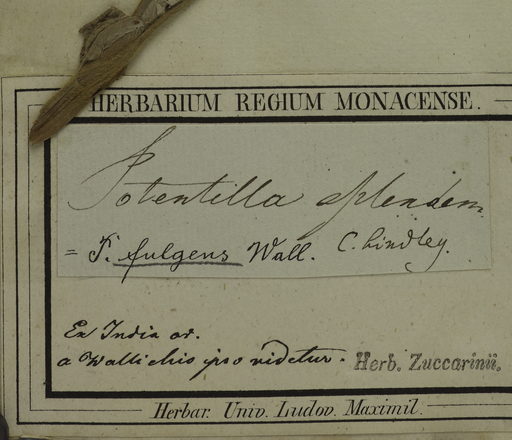 HERBARIUM REGIUM MONACENSE.
Potentilla splendens
= P. fulgens Wall. C. Lindley.
Ex India or.
a Wallichio ipso videtur.
Herb. Zuccarinii.
Herbar. Univ. Ludov. Maximil.